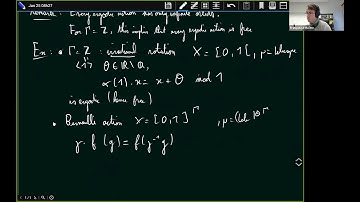 Jan 25 08h07
Remark: Every ergodic action has only infinite orbits.
For Γ = Z, this implies that every ergodic action is free
Ex: • Γ = Z : irrational rotation X = [0,1[, μ = Lebesgue
θ ∈ R\Q,
α(1).x = x + θ mod 1
is ergodic (hence free)
• Bernoulli action X = [0,1]^Γ , μ = (Leb)^{⊗Γ}
γ·f(g) = f(γ⁻¹g)